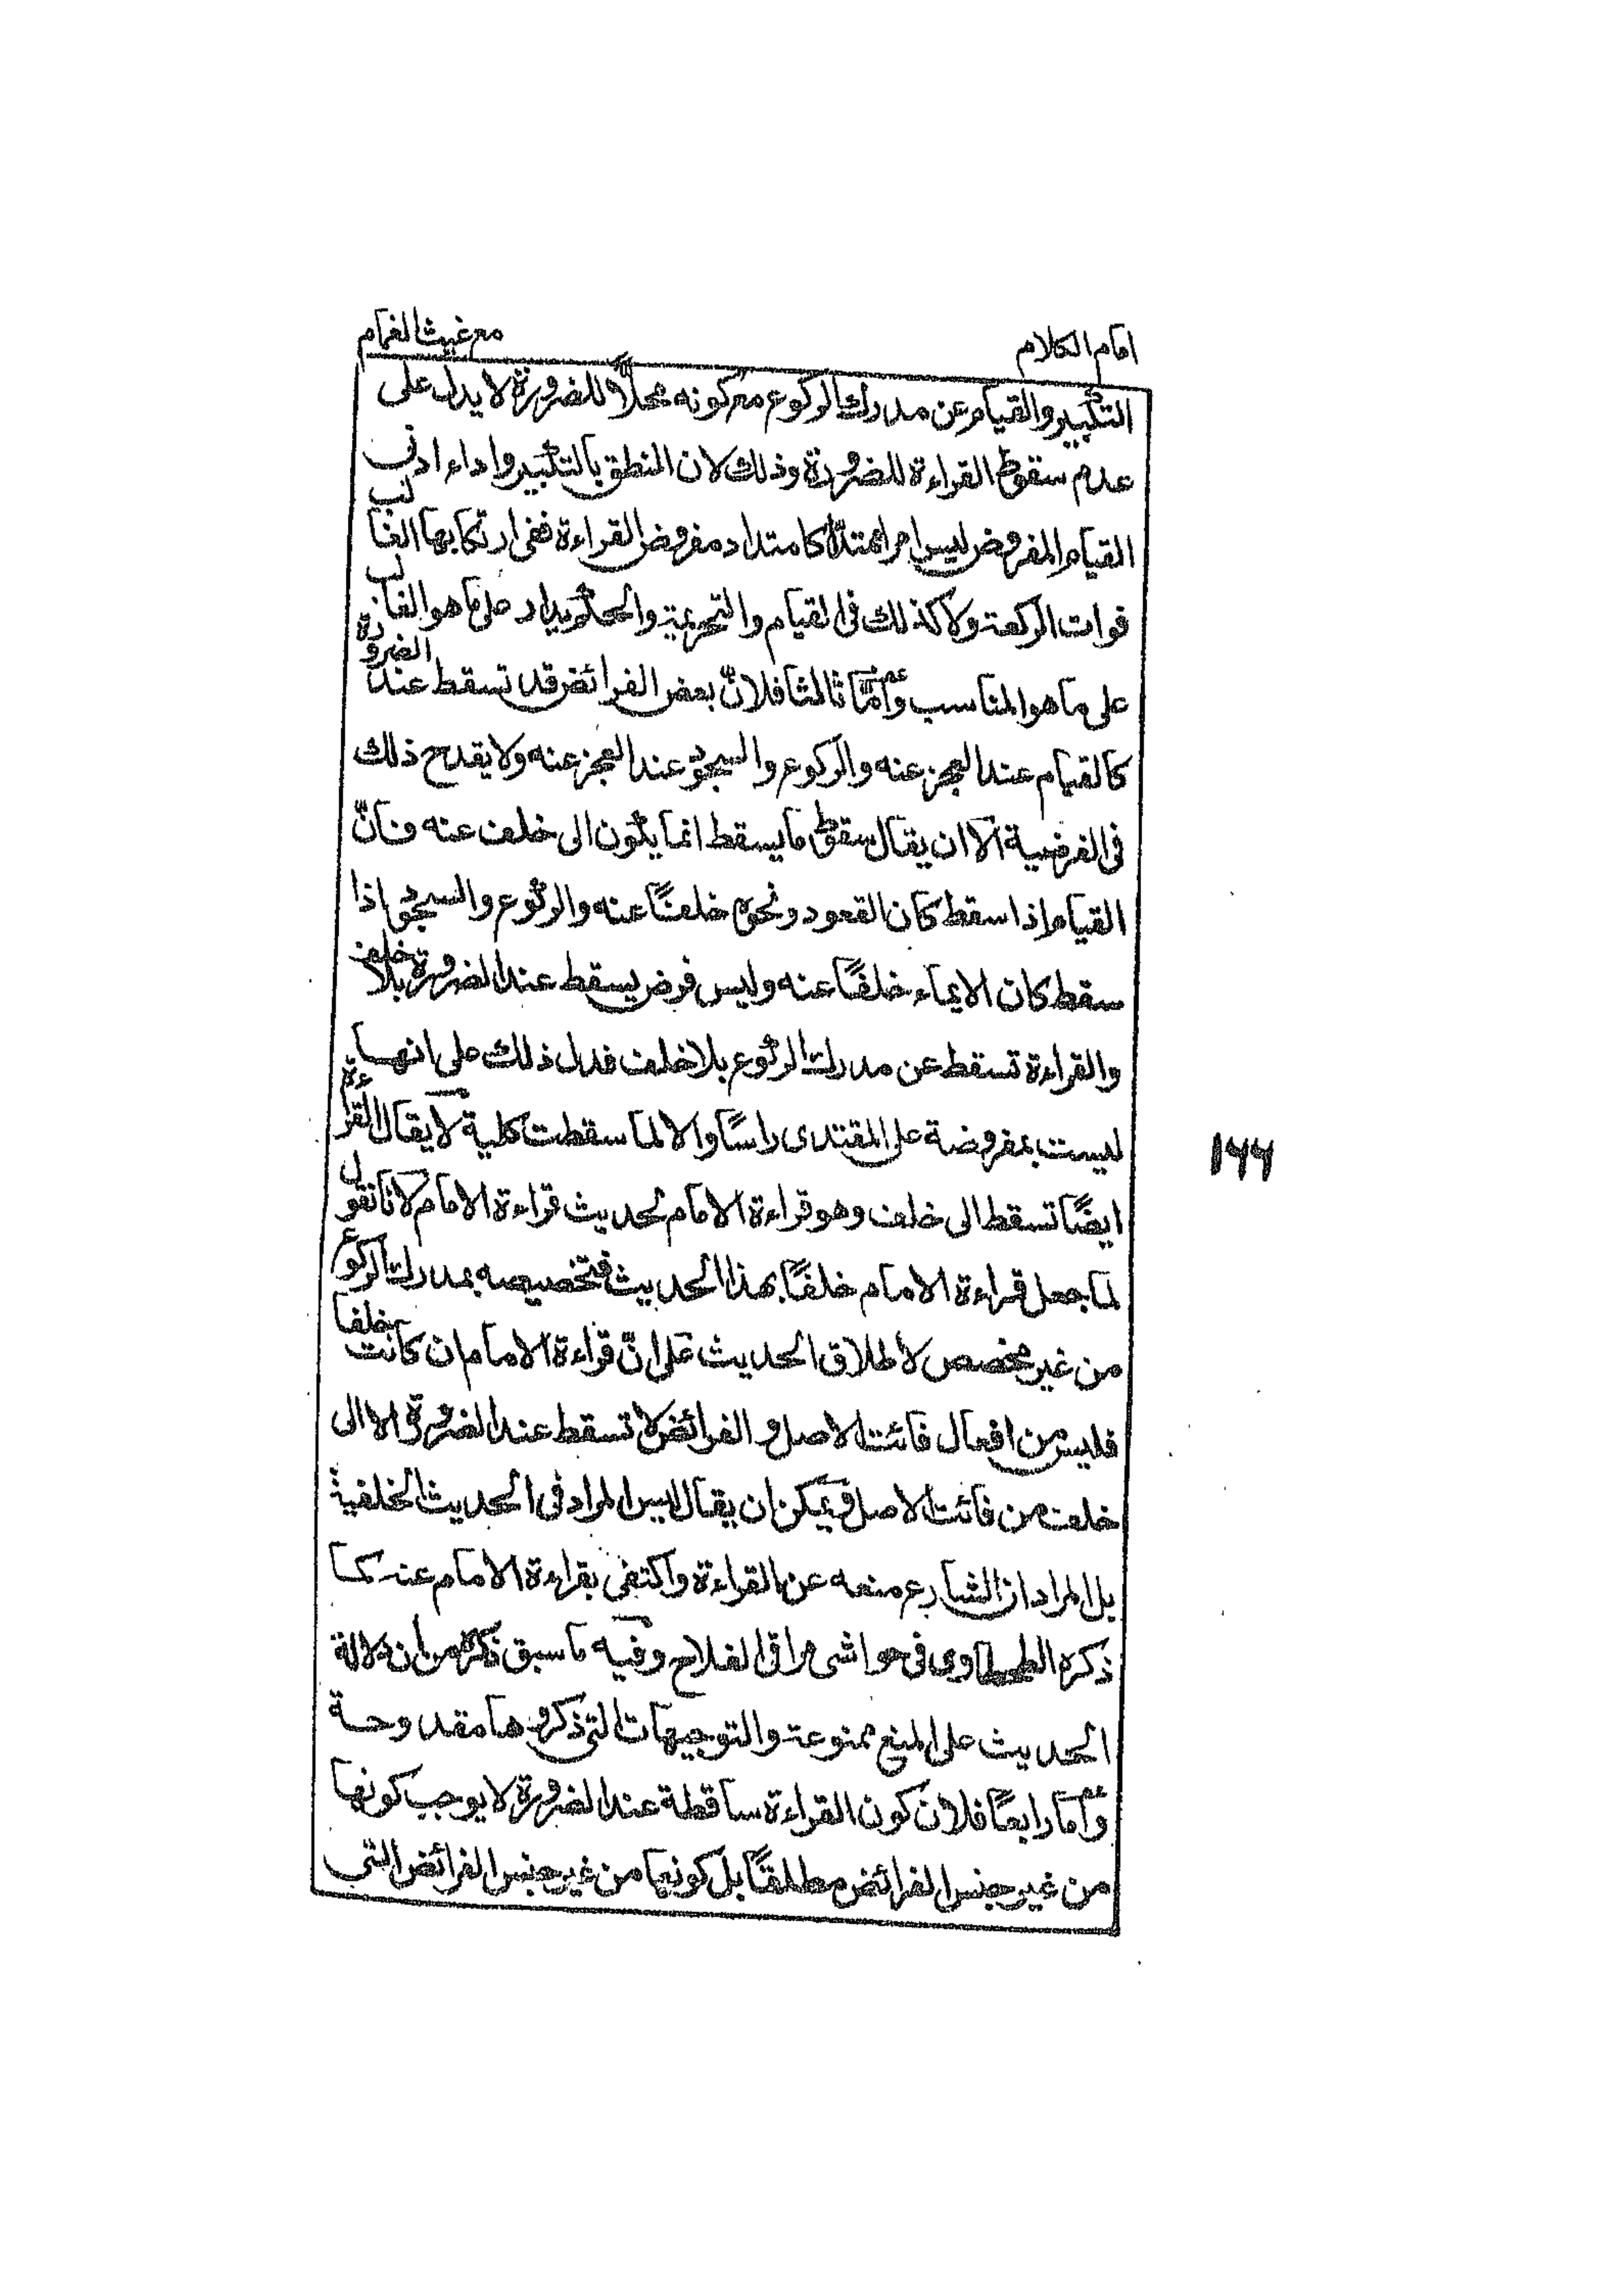 امام الكلام
مع غيث الغمام
التكبير والقيام عن مدرك الركوع مع كونه محلا للضرورة لا يدل على
عدم سقوط القراءة للضرورة وذلك لان النطق بالتكبير واداء ادنى
القيام المفروض ليس امرا ممتدا كامتداد مفروض القراءة ففى ارتكابها الغالب
فوات الركعة ولا كذلك فى القيام والتحريمة والحكم يدار على ما هو الغالب
على ما هو المناسب وأمّا ثالثا فلانّ بعض الفرائض قد تسقط عند الضرورة
كالقيام عند العجز عنه والركوع والسجود عند العجز عنه ولا يقدح ذلك
فى الفرضية الا ان يقال سقوط ما يسقط انما يكون الى خلف عنه فانّ
القيام اذا سقط كان القعود ونحوه خلفًا عنه والركوع والسجود اذا
سقط كان الايماء خلفًا عنه وليس فرض يسقط عند الضرورة بلا خلف
والقراءة تسقط عن مدرك الركوع بلا خلف فدل ذلك على انها
ليست بمفروضة على المقتدى راسًا والا لما سقطت كلية لا يقال القراءة
ايضًا تسقط الى خلف وهو قراءة الامام لحديث قراءة الامام لانا نقول
لما جعل قراءة الامام خلفًا بهذا الحديث فتخصيصه بمدرك الركوع
من غير مخصص لاطلاق الحديث على انّ قراءة الامام ان كانت خلفا
فليس من افعال فائت الاصل والفرائض لا تسقط عند الضرورة الا الى
خلف من فائت الاصل ويمكن ان يقال ليس المراد فى الحديث الخلفية
بل المراد ان الشارع منعه عن القراءة واكتفى بقراءة الامام عنه كما
ذكره الطحطاوى فى حواشى مراقى الفلاح وفيه ما سبق ذكره من ان دلالة
الحديث على المنع ممنوعة والتوجيهات التى ذكروها مقدوحة
وأما رابعًا فلان كون القراءة ساقطة عند الضرورة لا يوجب كونها
من غير جنس الفرائض مطلقًا بل كونها من غير جنس الفرائض التى
۱۶۶